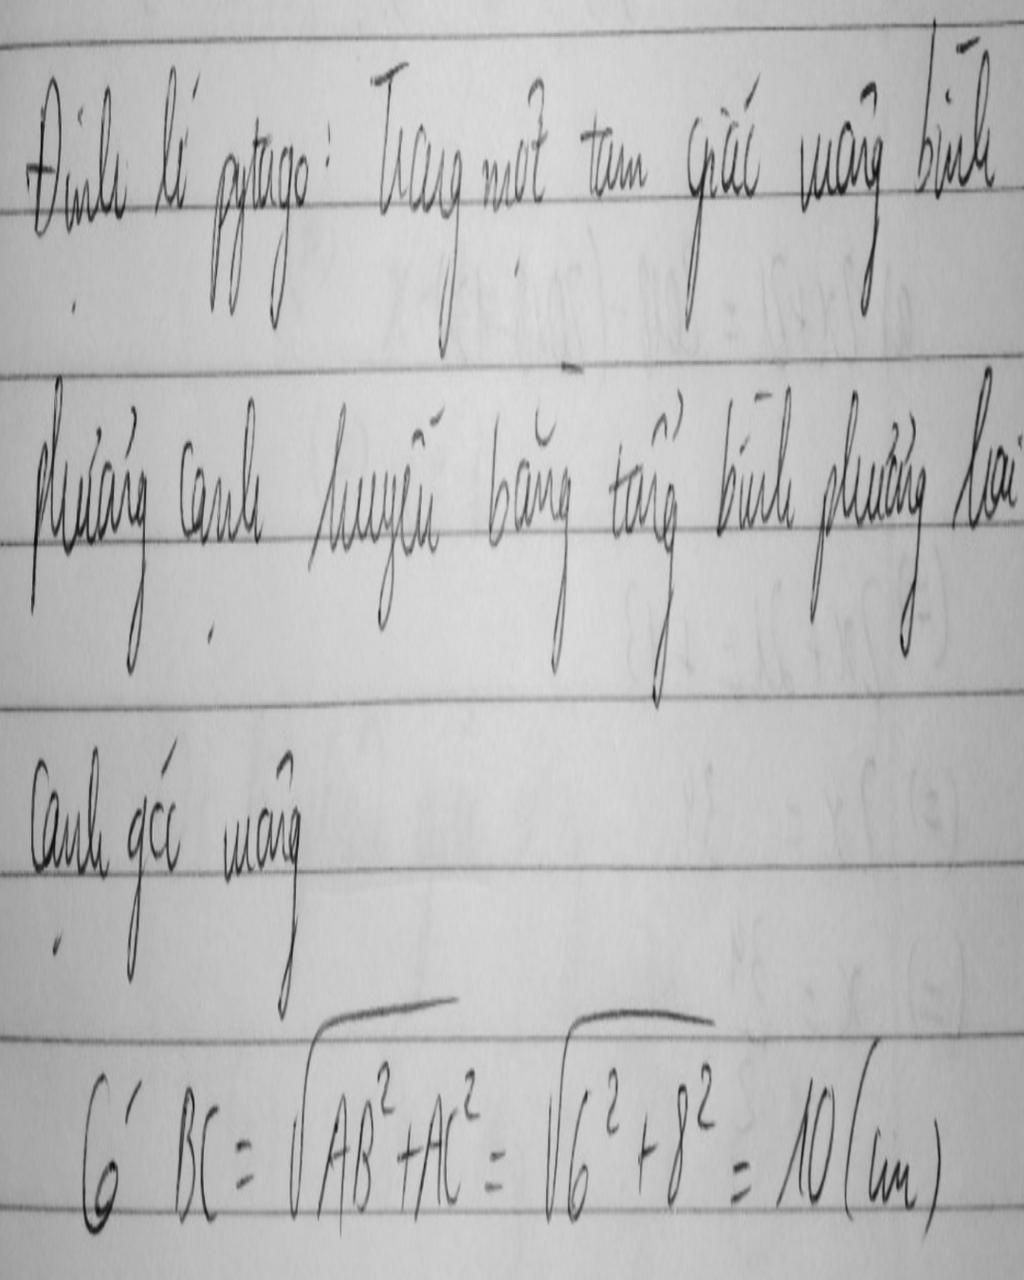 Định lí pytago: Trong một tam giác vuông bình
phương cạnh huyền bằng tổng bình phương hai
cạnh góc vuông
Có BC = √(AB² + AC²) = √(6² + 8²) = 10 (cm)